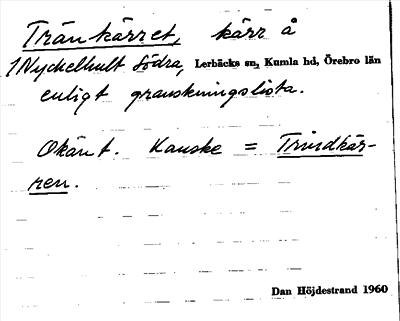 Tränkärret, kärr å
1 Nyckelhult Södra, Lerbäcks sn, Kumla hd, Örebro län
enligt granskningslista.
Okänt. Kanske = Trindkär-
ren.
Dan Höjdestrand 1960